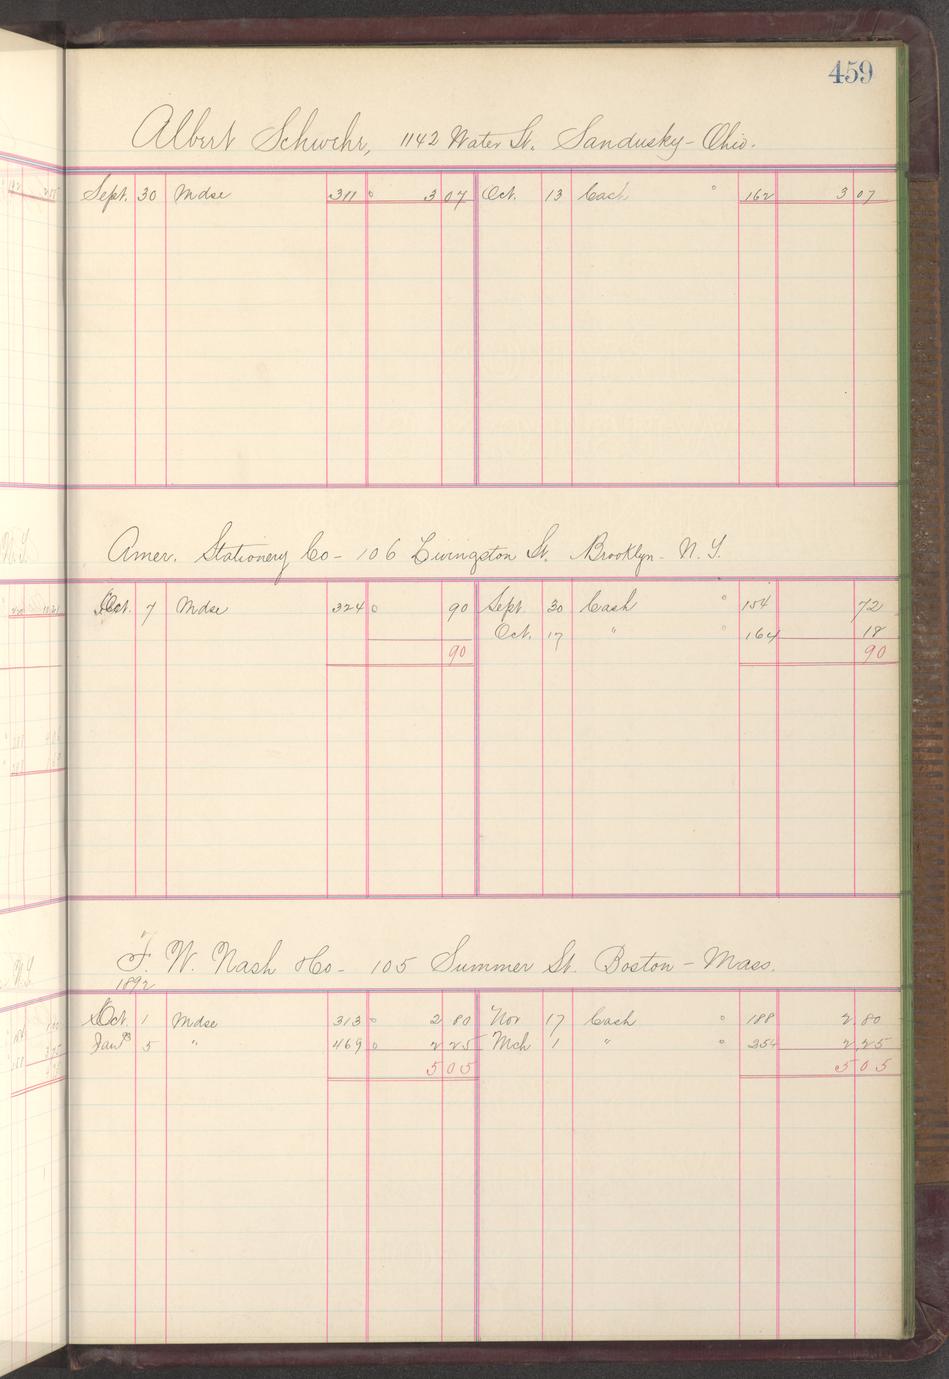 459
Albert Schwehr, 1142 Water St. Sandusky - Ohio.
Sept. 30 Mdse 311 3 07 Oct. 13 Cash 162 3 07
Amer. Stationery Co - 106 Livingston St. Brooklyn - N.Y.
Oct. 7 Mdse 324 90 Sept. 30 Cash 154 72
Oct. 17 " 164 18
90 90
F. W. Nash & Co - 105 Summer St. Boston - Mass.
1892
Oct. 1 Mdse 313 2 80 Nov 17 Cash 188 2 80
Jany 93 5 " 469 2 25 Mch 1 " 254 2 25
5 05 5 05